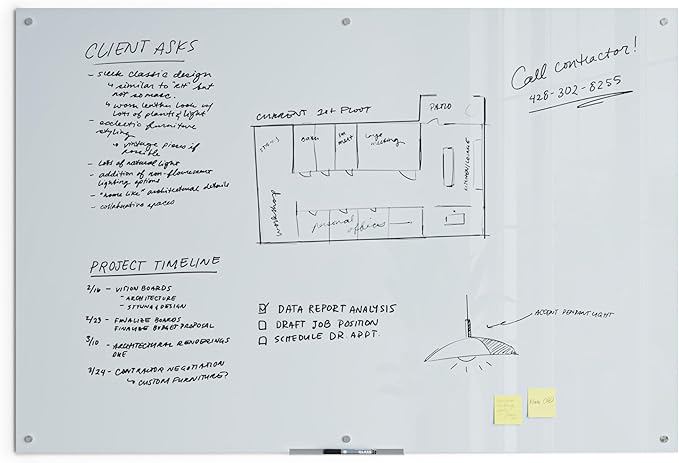 CLIENT ASKS
- sleek classic design
similar to but
not so masc.
worn leather look w/
lots of plants & light
- ecclectic furniture
styling
vintage pieces if
possible
- lots of natural light
- addition of non-flourescent
lighting options
- "home like" architectural details
- collaborative spaces
Call contractor!
428-302-8255
CURRENT FLOOR
PATIO
large
meeting
workshop
personal
offices
PROJECT TIMELINE
2/16 - VISION BOARDS
- ARCHITECTURE
- STYLING & DESIGN
2/23 - FINALIZE BOARDS
FINALIZE BUDGET PROPOSAL
3/10 - ARCHITECTURAL RENDERINGS
DUE
3/24 - CONTRACTOR NEGOTIATION
CUSTOM FURNITURE?
DATA REPORT ANALYSIS
DRAFT JOB POSITION
SCHEDULE DR. APPT.
ACCENT PENDANT LIGHT